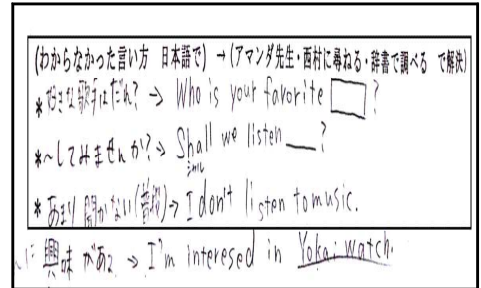 (わからなかった言い方 日本語で) →(アマンダ先生・西村に尋ねる・辞書で調べる で解決)
*好きな歌手はだれ? → Who is your favorite ?
*~してみませんか? → Shall we listen ___ ?
シャル
*あまり聞かない(普段)→ I don't listen to music.
に興味がある → I'm interesed in Yokai watch.